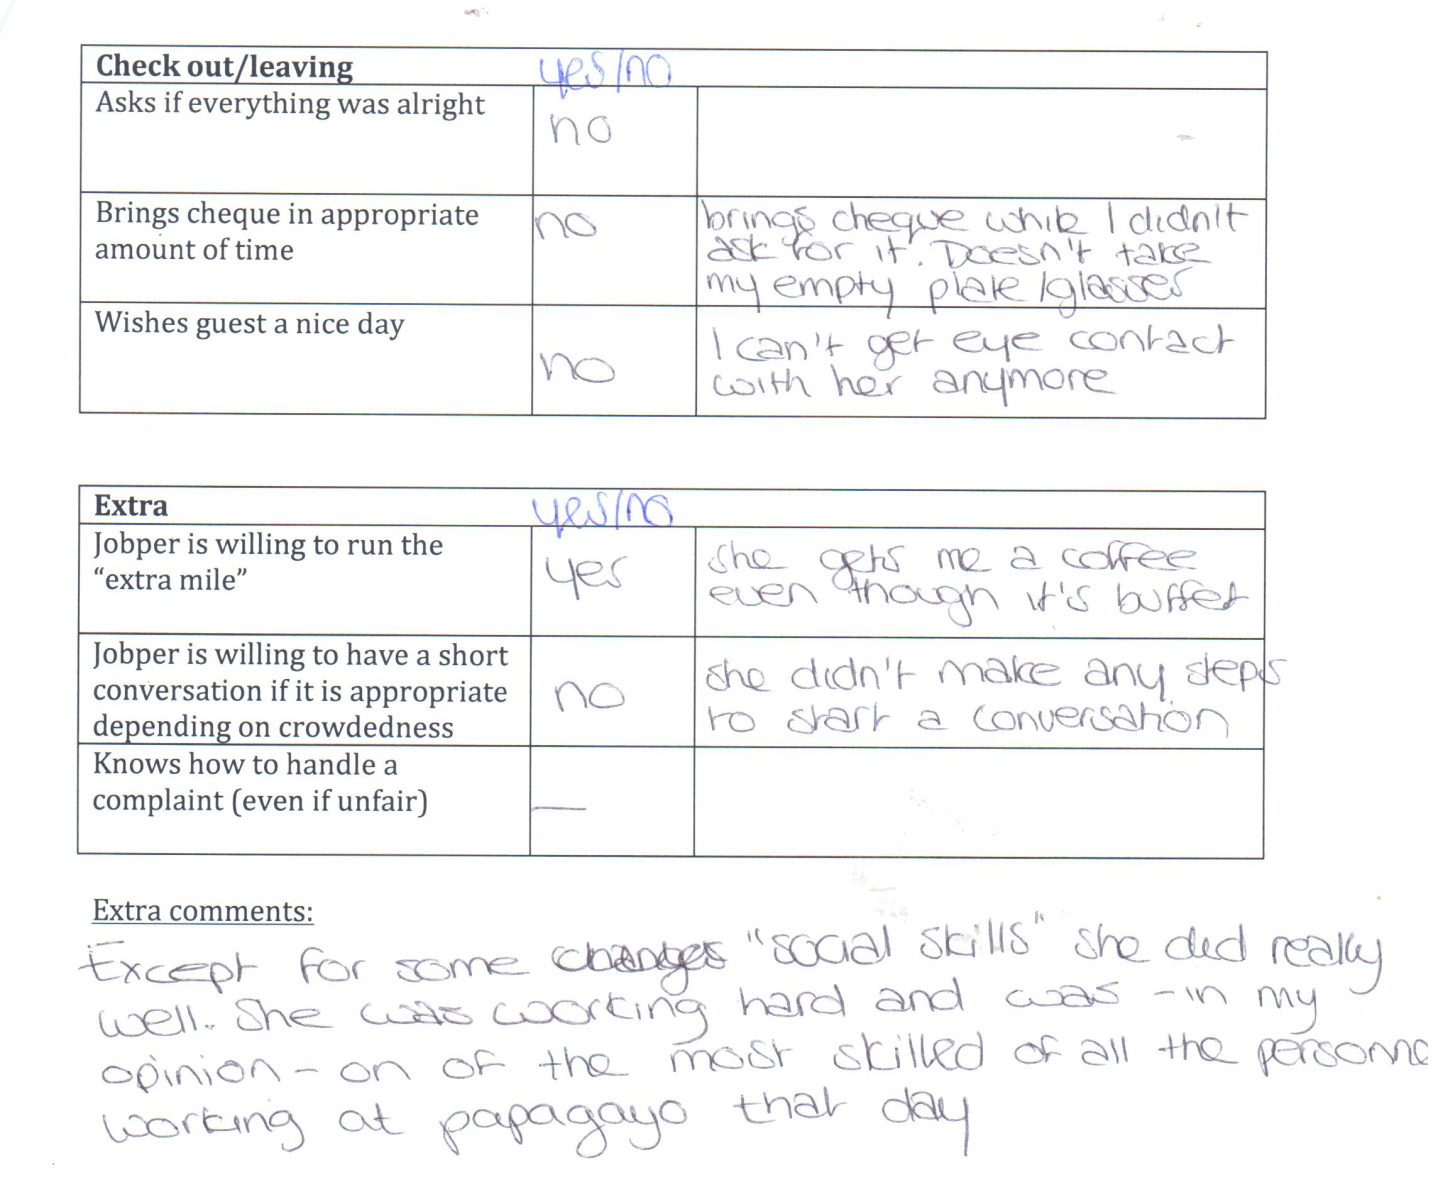 Check out/leaving yes/no
Asks if everything was alright
no
Brings cheque in appropriate
amount of time
no
brings cheque while I didn't
ask for it. Doesn't take
my empty plate/glasses
Wishes guest a nice day
no
I can't get eye contact
with her anymore
Extra yes/no
Jobper is willing to run the
“extra mile”
yes
she gets me a coffee
even though it's buffet
Jobper is willing to have a short
conversation if it is appropriate
depending on crowdedness
no
she didn't make any steps
to start a conversation
Knows how to handle a
complaint (even if unfair)
—
Extra comments:
Except for some changes "social skills" she did really
well. She was working hard and was - in my
opinion - on of the most skilled of all the personne
working at papagayo that day